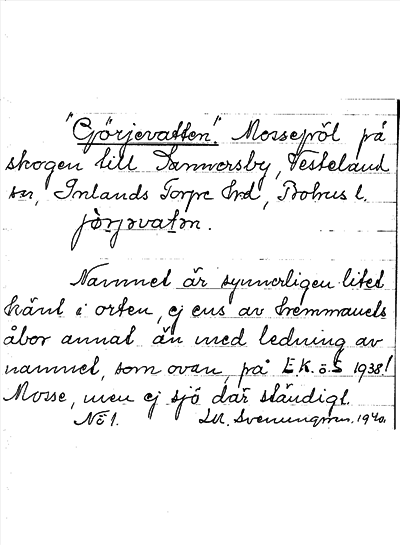 "Görjevatten". Mossepöl på
skogen till Sannersby, Vesteland
sn, Inlands Torpe hrd, Bohus l.
jö̀rjəvatən.
Namnet är synnerligen litet
känt i orten, ej ens av hemmanets
åbor annat än med ledning av
namnet, som ovan, på E.K. ö. S 1938!
Mosse, men ej sjö där ständigt.
Nö 1. Lll. Svenungsson. 1940.